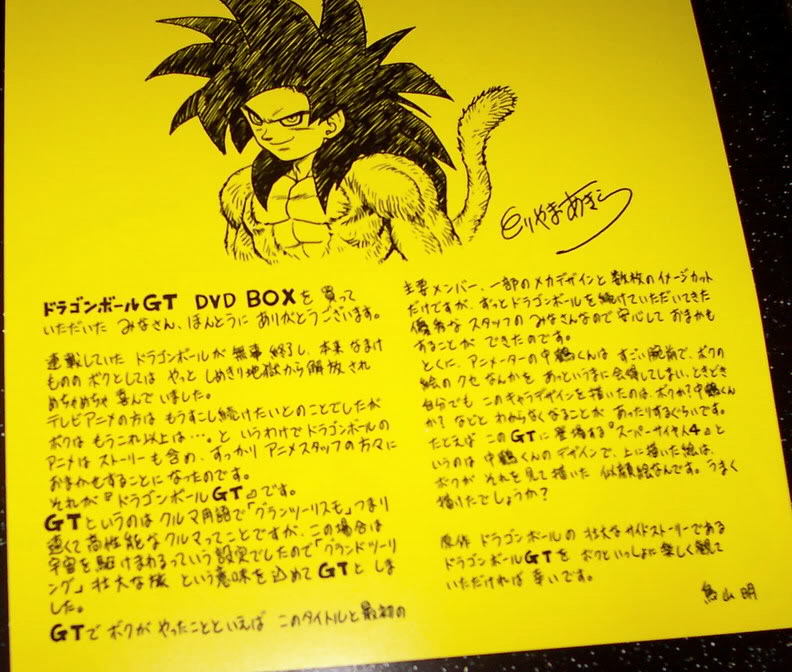 とりやまあきら
ドラゴンボールGT DVD BOXを買って
いただいた みなさん、ほんとうに ありがとうございます。
連載していた ドラゴンボールが 無事 終了し、本来 なまけ
ものの ボクとしては やっと しめきり地獄から 解放され
めちゃめちゃ 喜んで いました。
テレビアニメの方は もうすこし続けたいとのことでしたが
ボクは もうこれ以上は…。と いうわけで ドラゴンボールの
アニメは ストーリーも含め、すっかり アニメスタッフの方々に
おまかせすることに なったのです。
それが『ドラゴンボールGT』です。
GTというのは クルマ用語で「グランツーリスモ」つまり
速くて高性能なクルマってことですが、この場合は
宇宙を駆けまわるっていう設定でしたので「グランドツーリ
ング」壮大な旅 という意味を込めて GTと しま
した。
GTで ボクが やったことといえば このタイトルと 最初の
主要メンバー、一部のメカデザインと 数枚のイメージカット
だけですが、ずっとドラゴンボールを続けていただいてきた
優秀な スタッフの みなさんなので 安心して おまかせ
することが できたのです。
とくに、アニメーターの中鶴くんは すごい腕前で、ボクの
絵のクセ なんかを あっというまに会得してしまい、ときどき
自分でも このキャラデザインを 描いたのは、ボクか?中鶴くん
か? などと わからなくなることが あったりするぐらいです。
たとえば このGTに 登場する『スーパーサイヤ人4』と
いうのは 中鶴くんのデザインで、上に描いた絵は、
ボクが それを見て描いた 似顔絵なんです。うまく
描けたでしょうか?
原作 ドラゴンボールの 壮大なサイドストーリーである
ドラゴンボールGTを ボクといっしょに楽しく観て
いただければ 幸いです。
鳥山 明